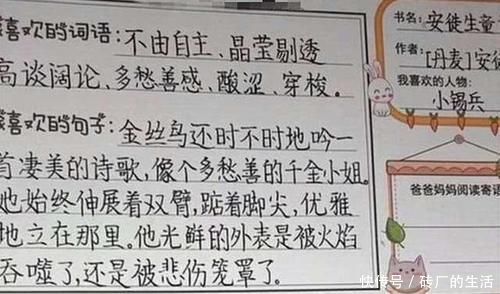 喜欢的词语:不由自主、晶莹剔透
高谈阔论、多愁善感、酸涩、穿梭。
喜欢的句子:金丝鸟还时不时地吟一
首凄美的诗歌,像个多愁善的千金小姐。
她始终伸展着双臂,踮着脚尖,优雅
地立在那里。他光鲜的外表是被火焰
吞噬了,还是被悲伤笼罩了。
书名:安徒生童
作者:[丹麦]安徒
我喜欢的人物:
小锡兵
爸爸妈妈阅读寄语
快传号/砖厂的生活